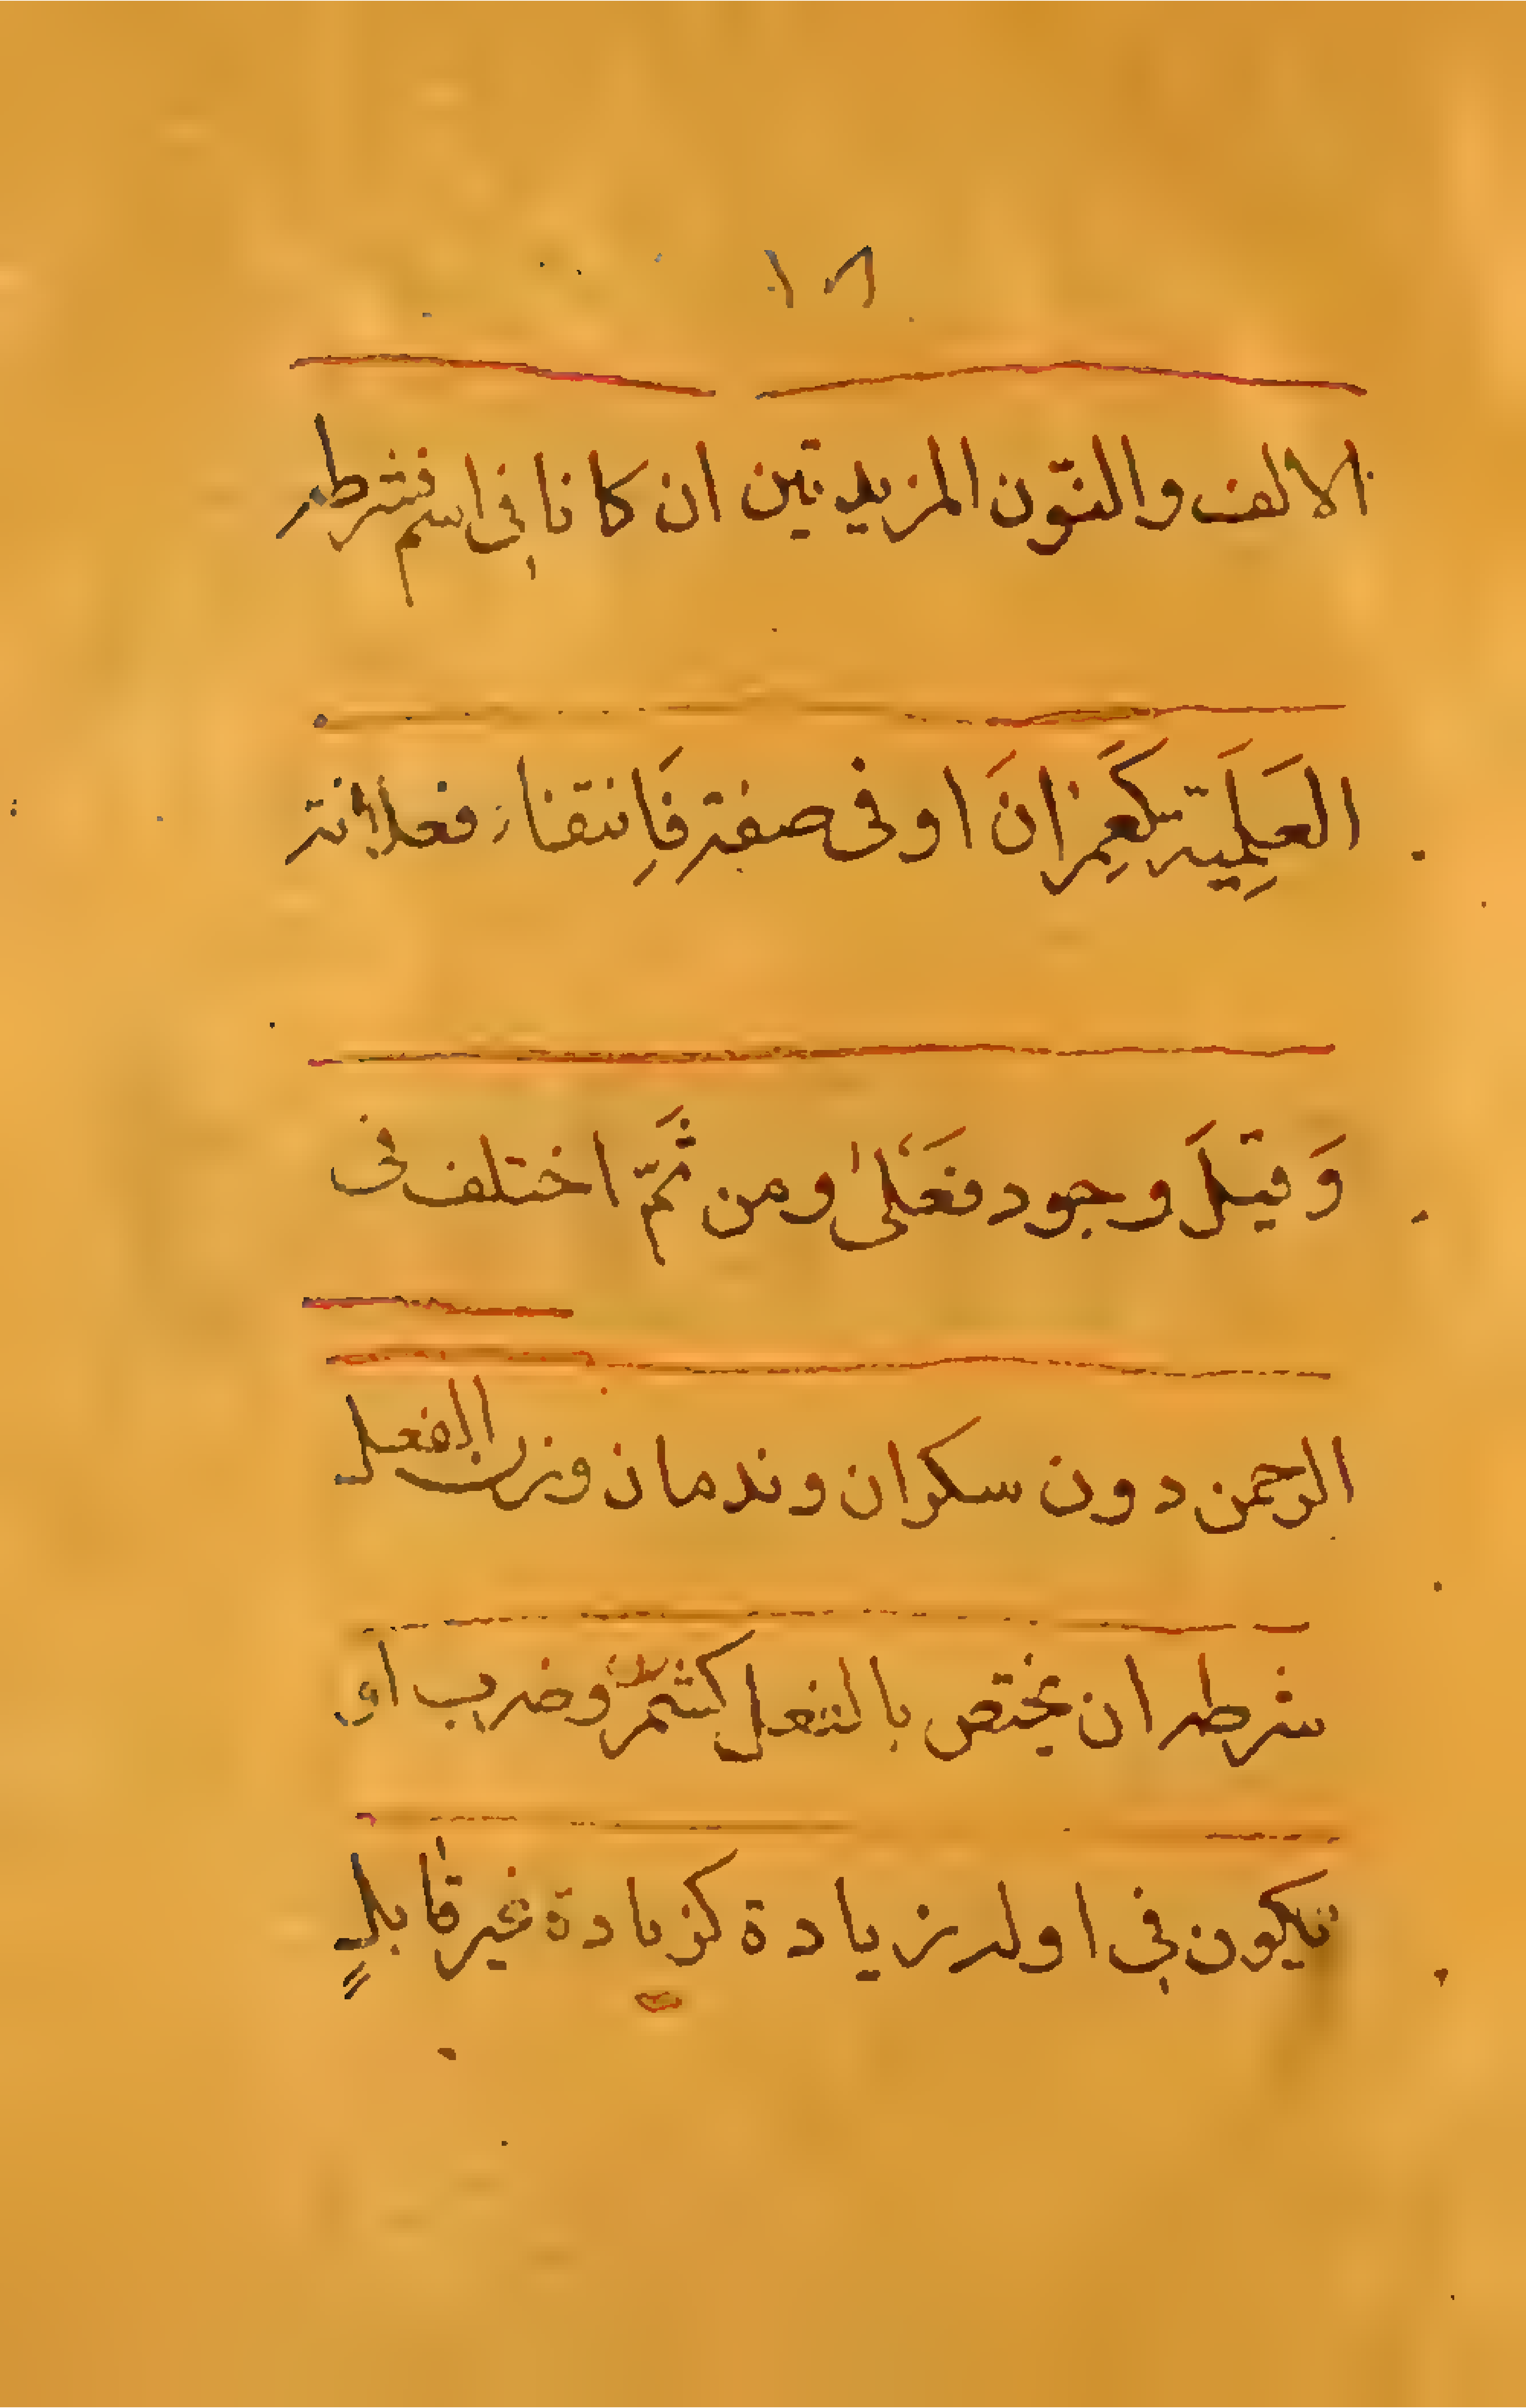 ١٨
الالف والنّون المزيدتين ان كانا في اسم فشرطه
العَلَمِيّة كَعِمرَانَ او فى صفة فَاِنتفاء فعلانة
وَقيلَ وجود فَعَلىٰ ومن ثَمّ اختلف فى
الرحمن دون سكران وندمان وزن الفعل
شرطه ان يختص بالفعل كشمّر وضرب او
يكون في اوله زيادة كزيادة غير قابلٍ